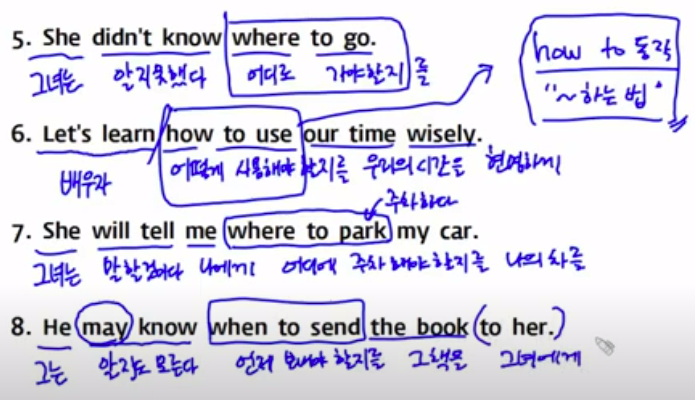 5. She didn't know where to go.
그녀는 알지못했다 어디로 가야할지를
how to 동작
"~하는 법"
6. Let's learn how to use our time wisely.
배우자 어떻게 사용해야 할지를 우리의 시간을 현명하게
주차하다
7. She will tell me where to park my car.
그녀는 말할것이다 나에게 어디에 주차해야할지를 나의 차를
8. He may know when to send the book (to her.)
그는 알지도 모른다 언제 보내야 할지를 그 책을 그녀에게